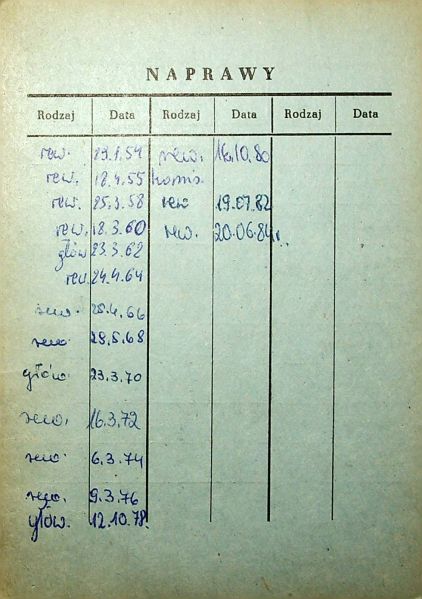 NAPRAWY
Rodzaj Data Rodzaj Data Rodzaj Data
rew. 29.1.54 rew. 16.10.80
rew. 18.4.55 komis.
rew. 25.3.58 rew 19.07.82
rew. 18.3.60 rew. 20.06.84r.
głów 23.3.62
rew. 24.4.64
rew. 28.4.66
rew. 28.5.68
głów. 23.3.70
rew. 16.3.72
rew. 6.3.74
rew. 9.3.76
głów. 12.10.78.